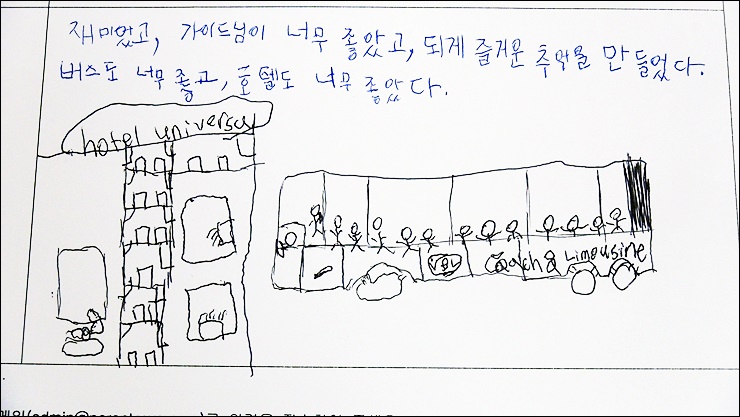 재미었고, 가이드님이 너무 좋았고, 되게 즐거운 추억을 만들었다.
버스도 너무 좋고, 호텔도 너무 좋았다.
hotel universu
VDL
Coach & Limousine